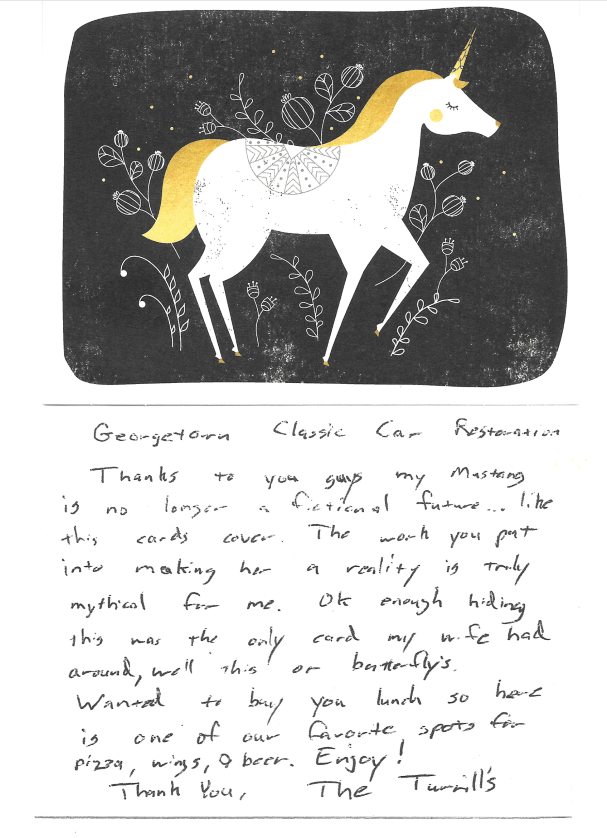 Georgetown Classic Car Restoration
Thanks to you guys my Mustang
is no longer a fictional future... like
this cards cover. The work you put
into making her a reality is truly
mythical for me. Ok enough hiding
this was the only card my wife had
around, well this or butterfly's.
Wanted to buy you lunch so here
is one of our favorite spots for
pizza, wings, & beer. Enjoy!
Thank You, The Turrill's